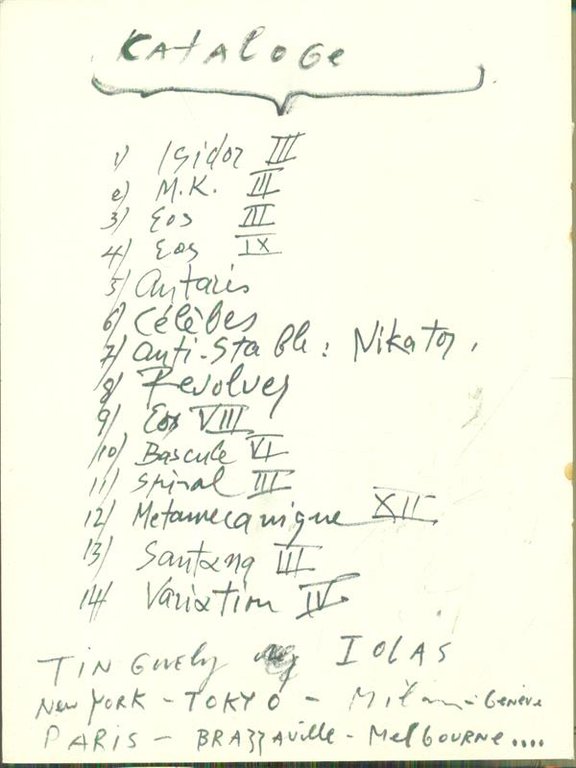 Kataloge
1) Isidor III
2) M.K. III
3) Eos III
4) Eos IX
5) Antaris
6) Célèbes
7) Anti-Stable: Nikator,
8) Revolver
9) Eos VIII
10) Bascule VI
11) Spiral III
12) Metamecanique XII
13) Santana III
14) Variation IV
TINGUELY IOLAS
NEW YORK - TOKYO - Milan - Genève
PARIS - BRAZZAVILLE - MELBOURNE....